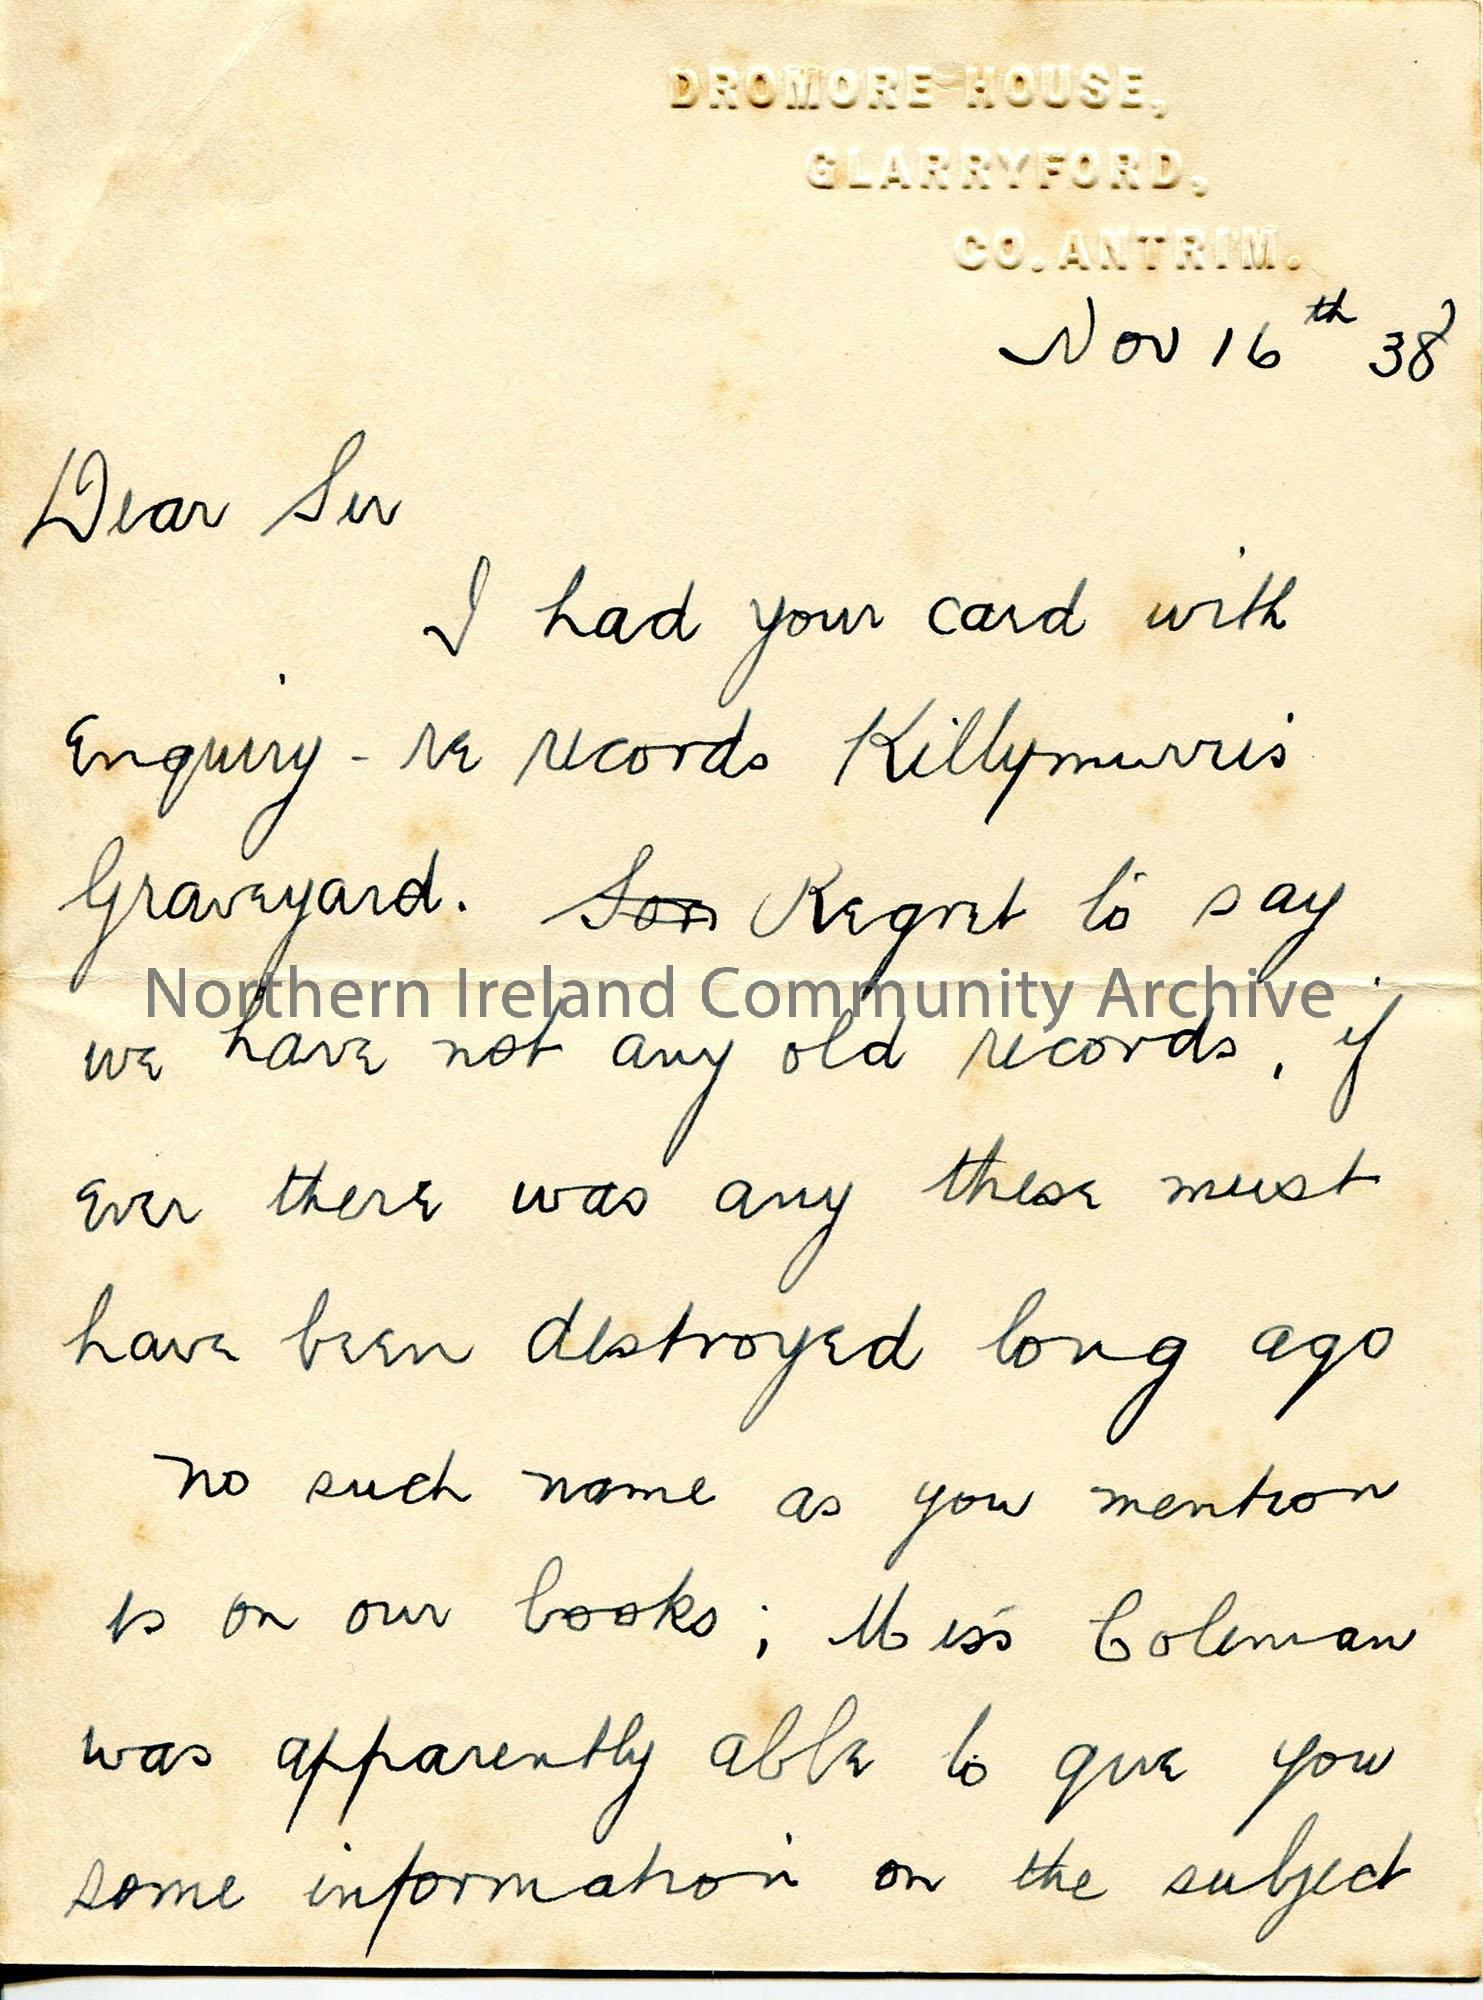 DROMORE HOUSE,
GLARRYFORD,
CO. ANTRIM.
Nov 16th 38
Dear Sir
I had your card with
Enquiry - re records Killymurris
Graveyard. Sor Regret to say
Northern Ireland Community Archive
we have not any old records, if
ever there was any these must
have been destroyed long ago
No such name as you mention
is on our books; Miss Coleman
was apparently able to give you
some information on the subject